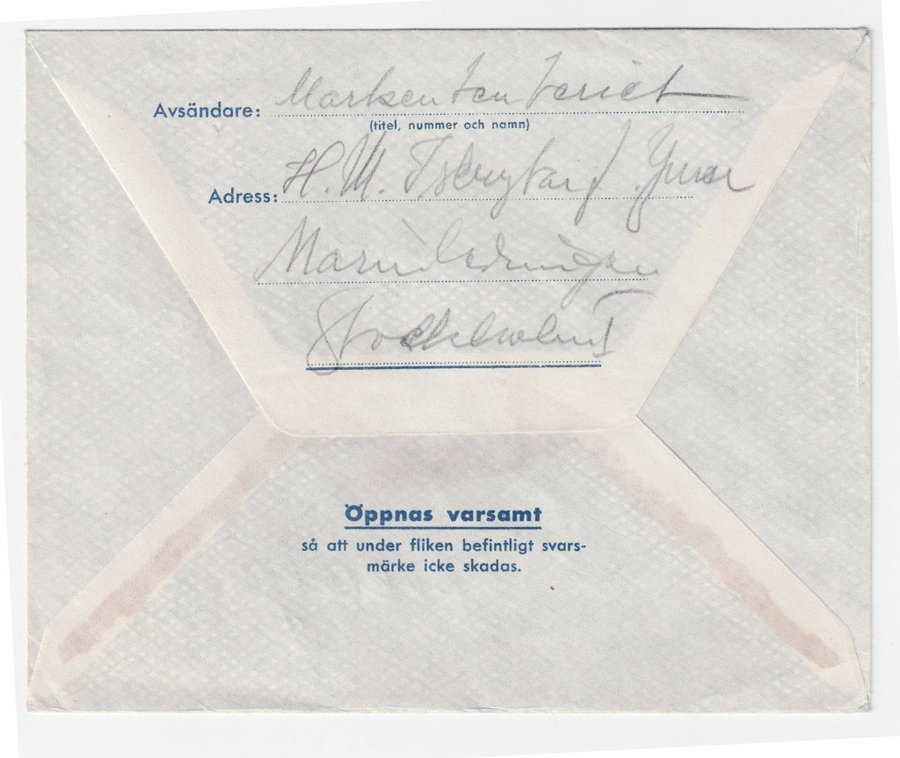 Avsändare: Marketenteriet
(titel, nummer och namn)
Adress: H. M. Isbrytarf. Ymer
Marinledningen
Stockholm 1
Öppnas varsamt
så att under fliken befintligt svars-
märke icke skadas.